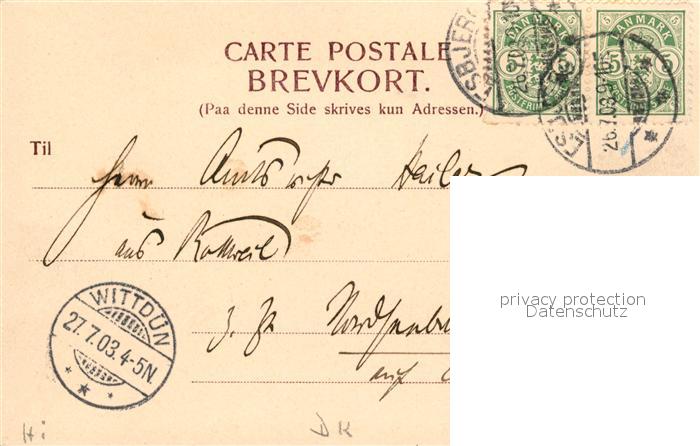 CARTE POSTALE
BREVKORT.
(Paa denne Side skrives kun Adressen.)
DANMARK 5 5 POSTFRIM
DANMARK 5 5
ESBJERG 26.7.03
26.7.03
Til
Herrn Amtsrichter Hailer
aus Rottweil
z. Zt. Nordseebad
auf
WITTDÜN
27.7.03.4-5N.
privacy protection
Datenschutz
H i
DK